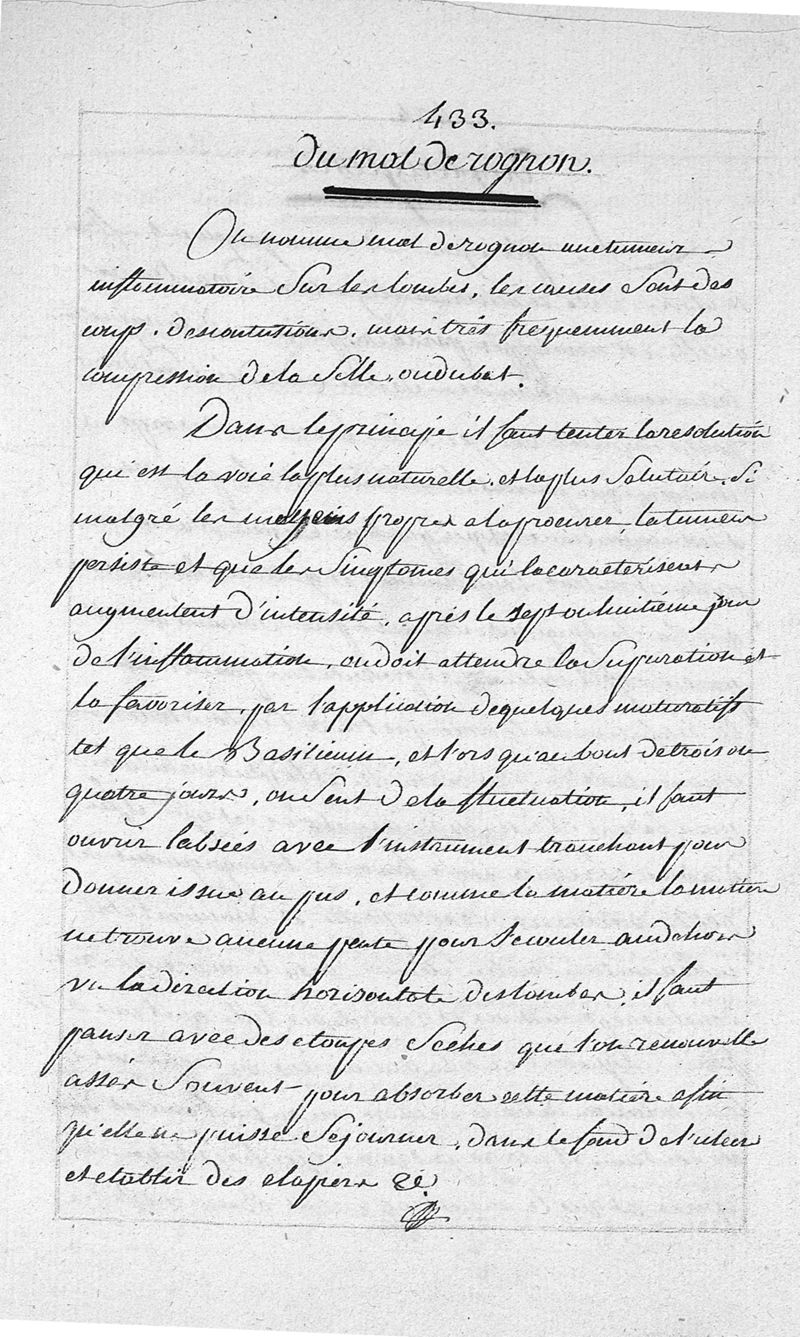 433.
du mal de rognon.
On nomme mal de rognon une tumeur
inflammatoire sur les lombes, les causes sont des
coups, des contusions, mais trés frequemment la
compression de la selle, ou du bat.
Dans le principe il faut tenter la resolution
qui est la voie la plus naturelle, et la plus salutaire. Si
malgré les moyens propres a la procurer la tumeur
persiste et que les Singtomes qui la caracterisent
augmentent d'intensité, aprés le sept ou huitiéme jour
de l'inflammation, on doit attendre la supuration et
la favoriser, par l'application de quelques maturatifs
tel que le Basilicum, et lors qu'au bout de trois ou
quatre jours, on sent de la fluctuation, il faut
ouvrir l'absées avec l'instrument tranchant pour
donner issue au pus, et comme la matiére la matiere
ne trouve aucune pente pour s'ecouler au dehors
vu la direction horizontale des lombes, il faut
panser avec des etoupes séches que l'on renouvelle
assés souvent pour absorber cette matiére afin
qu'elle ne puisse séjourner, dans le fond de l'ulcer
et etablir des clapiers &c.